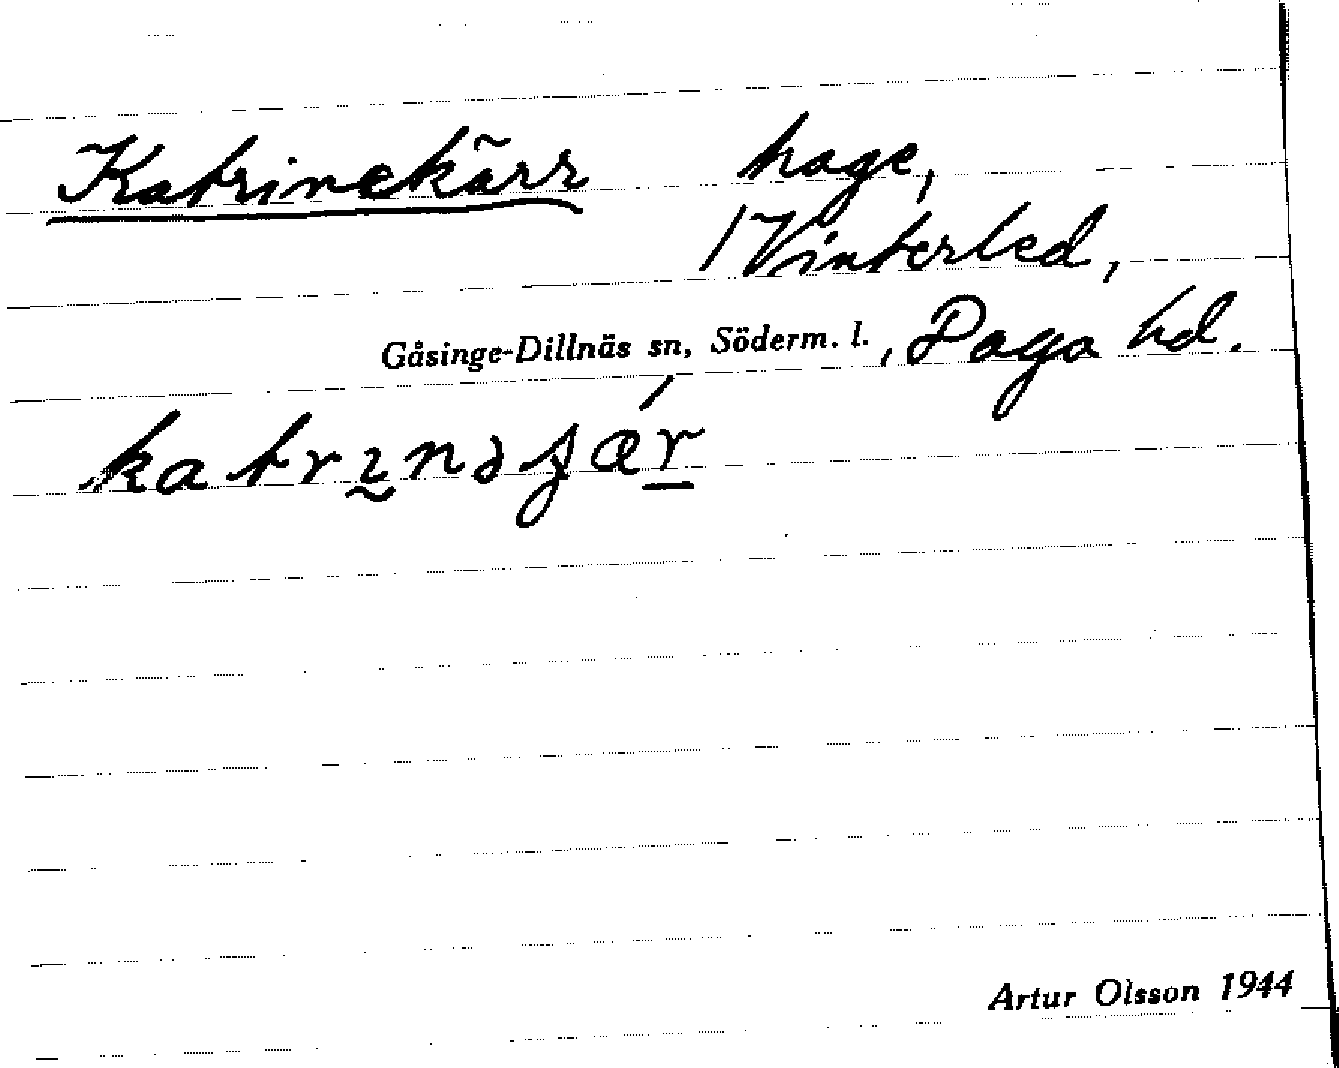 Katrinekärr hage,
1 Vinterled,
Gåsinge-Dillnäs sn, Söderm. l., Daga hd.
Artur Olsson 1944